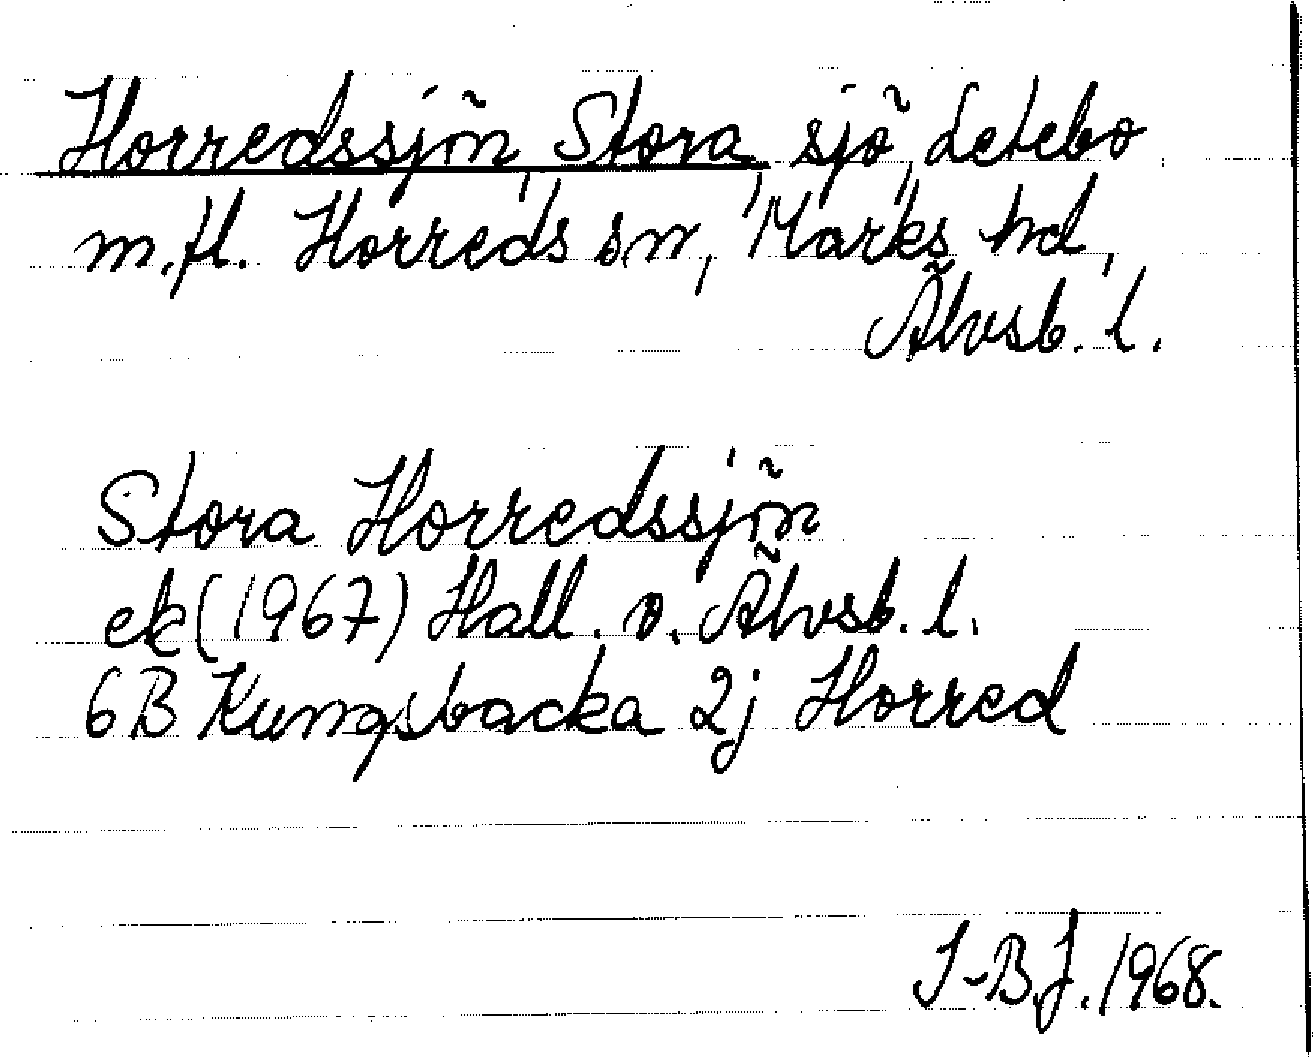 Horredssjön, Stora, sjö, Letebo
m.fl. Horreds sn, Marks hd,
Älvsb. l.
Stora Horredssjön
ek (1967) Hall. o. Älvsb. l.
6B Kungsbacka 2j Horred
I-B.J. 1968.